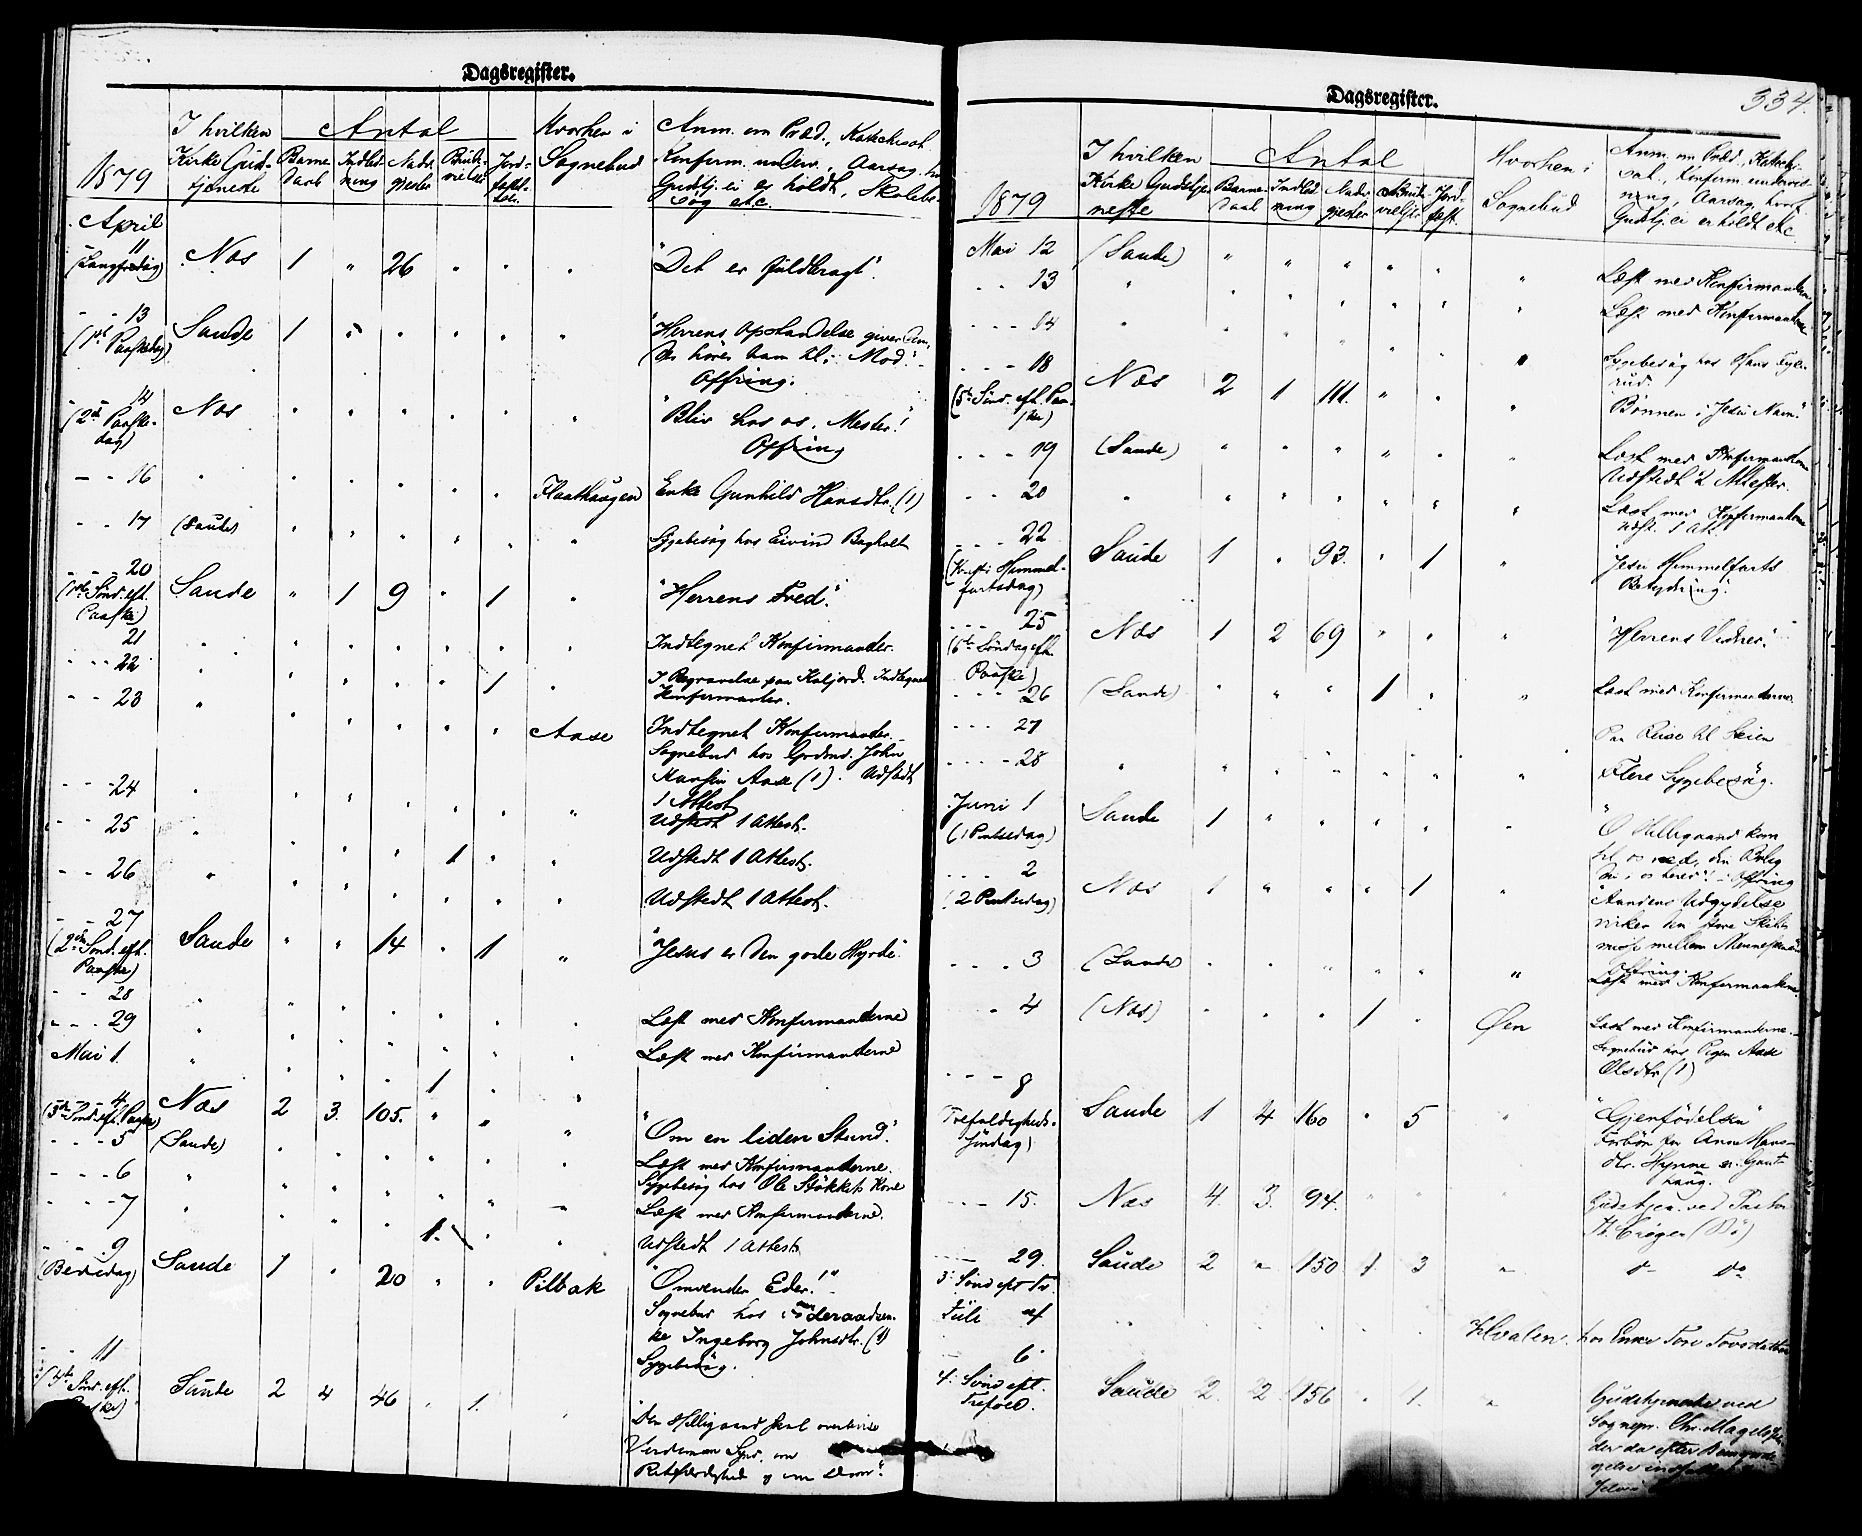 Dagsregister.
1879
I hvilken
Kirke Guds-
tjeneste
Antal
Barne
Daab
Indled
ning
Nadv
gjester
Brude
vielse
Jord-
fæst-
Hvorhen i
Sognebud
Anm. om Præd., Katechisat.
Konfirm. underv., Aarsag,
Gudstj. ei er holdt, Skolebe-
søg etc.
April
11
(Langfredag) Næs 1 " 26 " " " "Det er fuldbragt".
- - 13
(1st Paaskedag) Saude 1 " " " " " "Herrens Opstandelse giver dem,
der hører ham til, Mod." -
Offring.
14
(2d Paaske-
dag) Næs " " " " " " "Blir hos os, Mester!"
Offring
- - 16 " " " " " " Flaathaugen Enke Gunhild Hansdtr. (1)
- - 17 (Saude) " " " " " " Sygebesøg hos Eivind Bagholt
- - 20
(1ste Sønd. eft.
Paaske) Saude " 1 9 " 1 " "Herrens Fred".
21 " " " " " " Indtegnet Konfirmander.
- - 22 " " " " " 1 " I Begravelse paa Indtegnet
Konfirmanter.
- - 23 " " " " " " Aase Indtegnet Konfirmanter. -
Sognebud hos Grdmd. John
Hansen Aase (1). Udstedt
1 Attest
- - 24 " " " " " " " Udstedt 1 Attest.
- - 25 " " " " 1 " " Udstedt 1 Attest.
- - 26 " " " " " " " Udstedt 1 Attest.
- - 27
(2den Sønd. eft.
Paaske) Saude " " 14 " 1 " "Jesus er den gode Hyrde".
- - 28 " " " " " " " Læst med Konfirmanterne
- - - 29 " " " " " " " Læst med Konfirmanterne
Mai 1. " " " " 1 " "
- - 4
(3die Sønd. eft. Paaske) Næs 2 3. 105. " " " "Om en liden Stund".
- - - 5 (Saude) " " " " " " Læst med Konfirmanterne.
- - - 6 " " " " " " " Sygebesøg hos Ole Stokkets Kone
- - - 7 " " " " 1. " " Læst med Konfirmanterne.
Udstedt 1 Attest
- - 9
(Bededag) Saude 1 " 20 " " Pilbak "Omvender Eder!" -
Sognebud hos
Ingeborg Johnsdtr. (1)
Sygebesøg.
- - 11
(4de Sønd. eft.
Paaske) Saude 2 4 46 " 1. " "Den Helligaand skal overbevise
Verden om Synd, om
Retfærdighed og om Dom".
Dagsregister.
334.
1879
I hvilken
Kirke Gudstje
neste
Antal
Barne-
Daab
Indled
ning
Nadv
gjester
Brude
vielser
Jord-
fæst.
Hvorhen i
Sognebud
Anm. om Præd., Kateki-
sat., Konfirm. undervis-
ning, Aarsag, hvorf.
Gudstj. ei er holdt etc.
Mai 12 (Saude) " " " " " " Læst med Konfirmanterne
- - 13 " " " " " " " Læst med Konfirmanterne
- - - 14 " " " " " " " Sygebesøg hos Hans
rud.
- - - 18
(5te Sønd. eft. Paa-
ske) Næs 2 1 111. " " " "Bønnen i Jesu Navn."
- - - 19 (Saude) " " " " " " Læst med Konfirmanterne
Udstedt 2 Attester.
- - 20 " " " " " " " Læst med Konfirmanterne
Udst. 1 Att.
- - - 22
(Kristi Himmel-
fartsdag) Saude 1 " 93. " 1 " "Jesu Himmelfarts
Betydning".
- - - 25
(6te Søndag eft.
Paaske) Næs 1 2 69 " " " "Herrens Vidner".
- - - 26 (Saude) " " " 1 " " Læst med Konfirmanterne
- - - 27 Paa Reise til Skien
- - - 28 " " " " " " " Flere Sygebesøg.
Juni 1
(1 Pintsedag) Saude 1 " " " " " "O Helligaand kom
til os ned, din Bolig
os bered"! - Offring
- - - 2
(2 Pintsedag) Næs 1 " " " 1 " "Aandens Udgydelse
virker den store Skils
misse mellem Menneskene"
Offring.
- - - 3 (Saude) " " " " " " Læst med Konfirmanterne.
- 4 (Næs) " " " 1 " Øen Læst med Konfirmanterne. -
Sognebud hos Pigen Aase
Olsdtr. (1)
- - - 8
Trefoldigheds-
søndag) Saude 1 4 160 " 5 " "Gjenfødelsen"
Forbøn for Anne Hans-
dtr.
haug.
- - - 15. Næs 4. 3. 94. " " " Gudstjen. ved Pastor
H. Crøger (Bø)
- - - 29.
3. Sønd eft Tr. Saude 2 " 150 1 3 " d° d°
Juli 4 " " " " " " Hvalen. hos Enke Tone Tovsdatter
- - 6.
4. Sønd eft.
Trefold. Saude 2. 2 156 " 1. " Gudstjeneste ved
Sognepr. Chr. Magelssen,